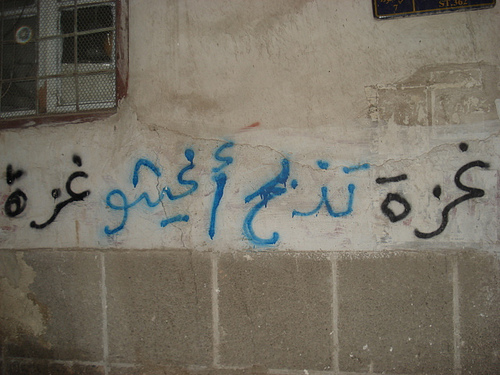 غزة تذبح أغيثو غزة